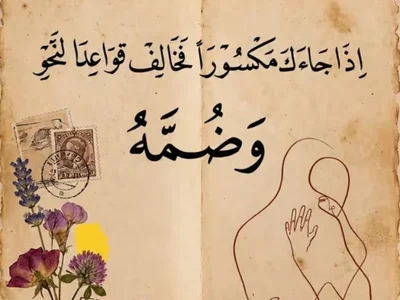 اِذَا جَاءَكَ مَكْسُوْرَاً فَخَالِفْ قَوَاعِدَا لنَّحَوِ
وَضُمَّهُ